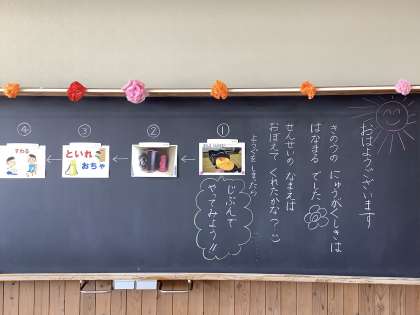 おはようございます
きのうの にゅうがくしきは
はなまる でした
せんせいの なまえは
おぼえて くれたかな?
よういを しましたら
①
じぶんで
やってみよう!!
②
③
といれ
おちゃ
④
すわる